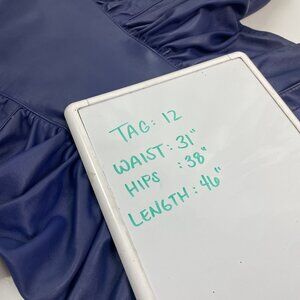 TAG: 12
WAIST: 31"
HIPS : 38"
LENGTH: 46"